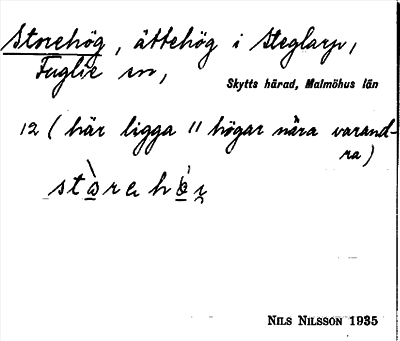 Storehög, ättehög i Steglarp,
Fuglie sn,
Skytts härad, Malmöhus län
12 (här ligga 11 högar nära varand-
ra)
NILS NILSSON 1935